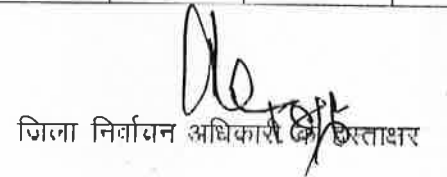 जिला निर्वाचन अधिकारी के हस्ताक्षर